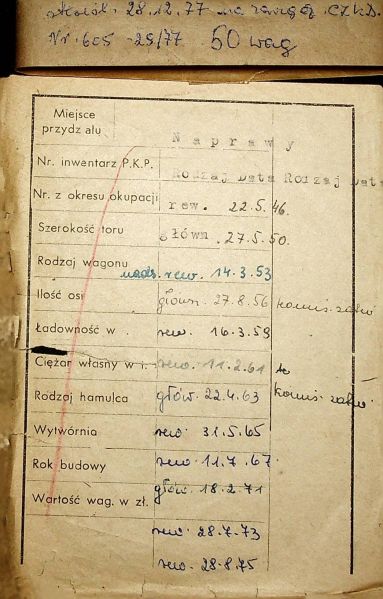 28.12.77 na
Nr. 605 -25/77 50 wag
Miejsce
przydz ału
Naprawy
Nr. inwentarz P.K.P.
Rodzaj Data Rodzaj Data
Nr. z okresu okupacji
rew. 22.5.46.
Szerokość toru
główn. 27.5.50.
Rodzaj wagonu
rew. 14.3.53
Ilość osi
główn. 27.8.56
Ładowność w .
rew. 16.3.59
Ciężar własny w t.
rew. 11.2.61
Rodzaj hamulca
głów. 22.4.63
Wytwórnia
rew 31.5.65
Rok budowy
rew 11.7.67
głów. 18.2.71
Wartość wag. w zł.
rew. 28.7.73
rew. 28.8.75